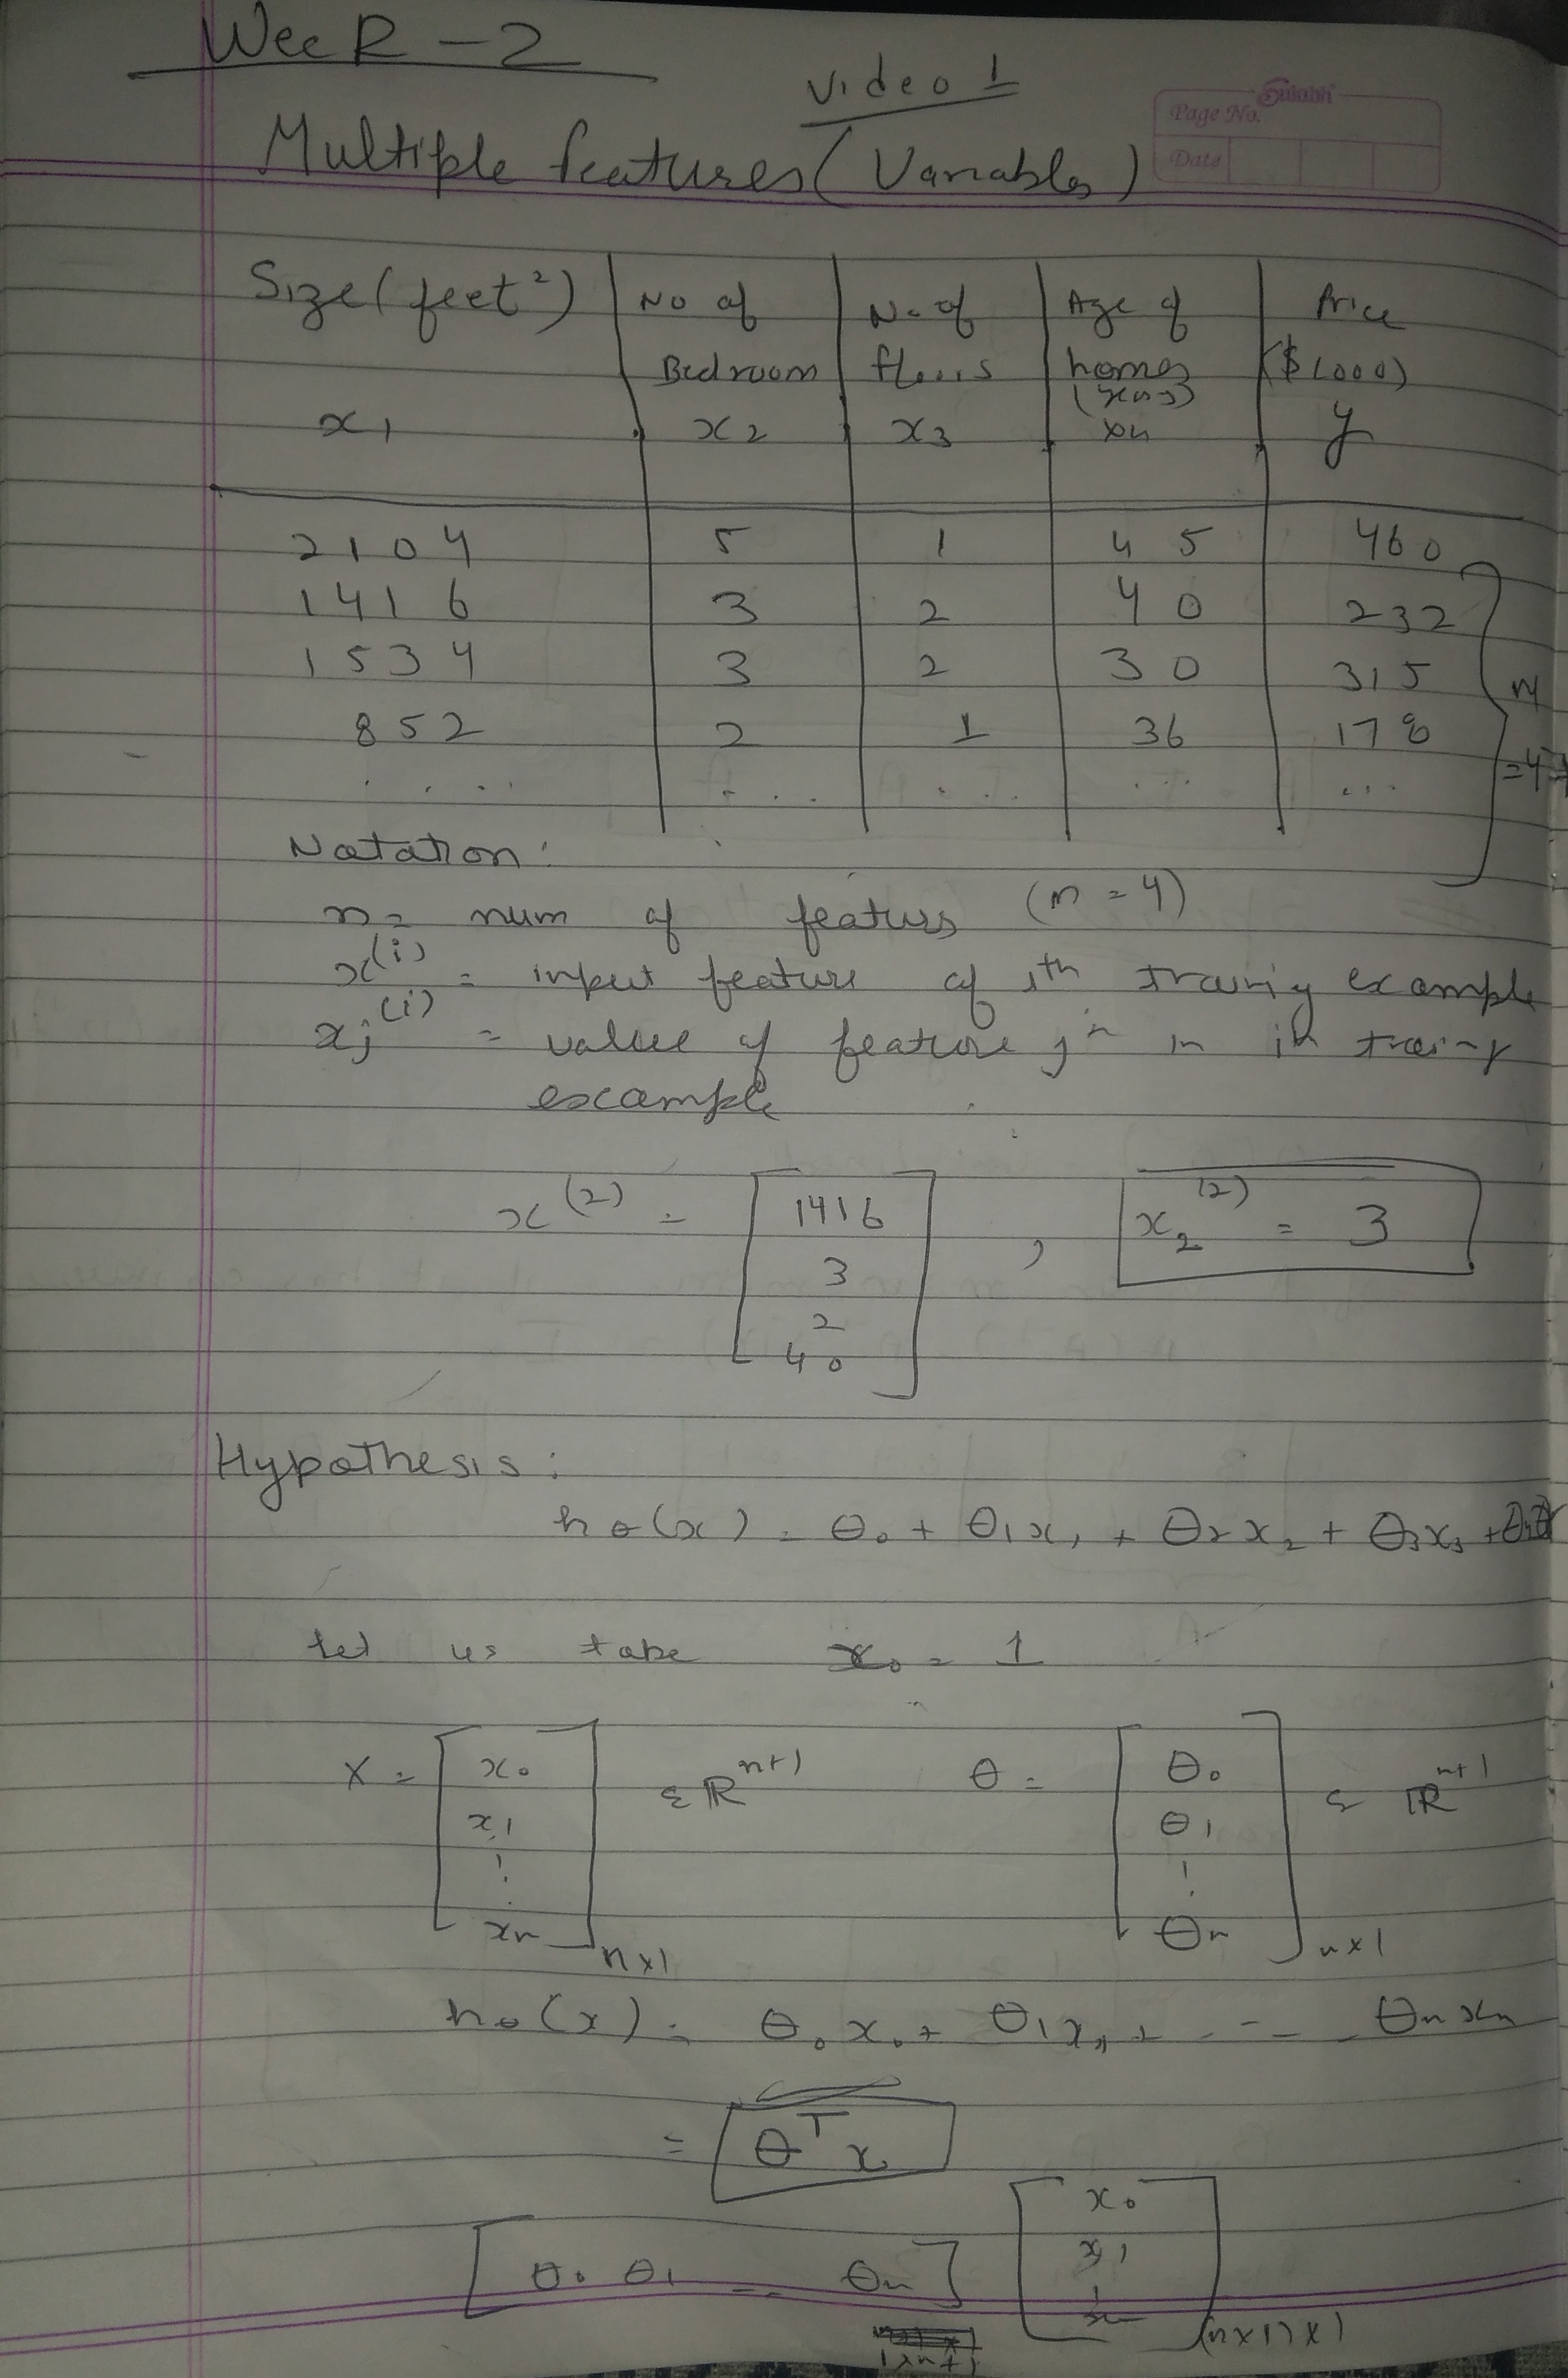 Week - 2
Video 1
Sulabh
Page No.
Date
Multiple features (Variables)
Size (feet²) | No of Bedroom | No. of floors | Age of homes (years) | Price ($1000)
x₁ | x₂ | x₃ | x₄ | y
2104 | 5 | 1 | 45 | 460
1416 | 3 | 2 | 40 | 232
1534 | 3 | 2 | 30 | 315
852 | 2 | 1 | 36 | 178
.... | .... | .... | ... | ...
Notation:
n = num of featurs (n = 4)
x⁽ⁱ⁾ = input feature of ith training example
xⱼ⁽ⁱ⁾ = value of feature j in ith training
example
x⁽²⁾ = [1416 3 2 40] , x₂⁽²⁾ = 3
Hypothesis:
hθ(x) = θ₀ + θ₁x₁ + θ₂x₂ + θ₃x₃ +
Let us take x₀ = 1
X = [x₀ x₁ ⋮ xₙ] n×1 ε ℝⁿ⁺¹ θ = [θ₀ θ₁ ⋮ θₙ] n×1 ε ℝⁿ⁺¹
hθ(x) = θ₀x₀ + θ₁x₁ + - - - - θₙxₙ
= θᵀx
[θ₀ θ₁ -- θₙ] [x₀ x₁ ⋮ xₙ] (n×1)×1